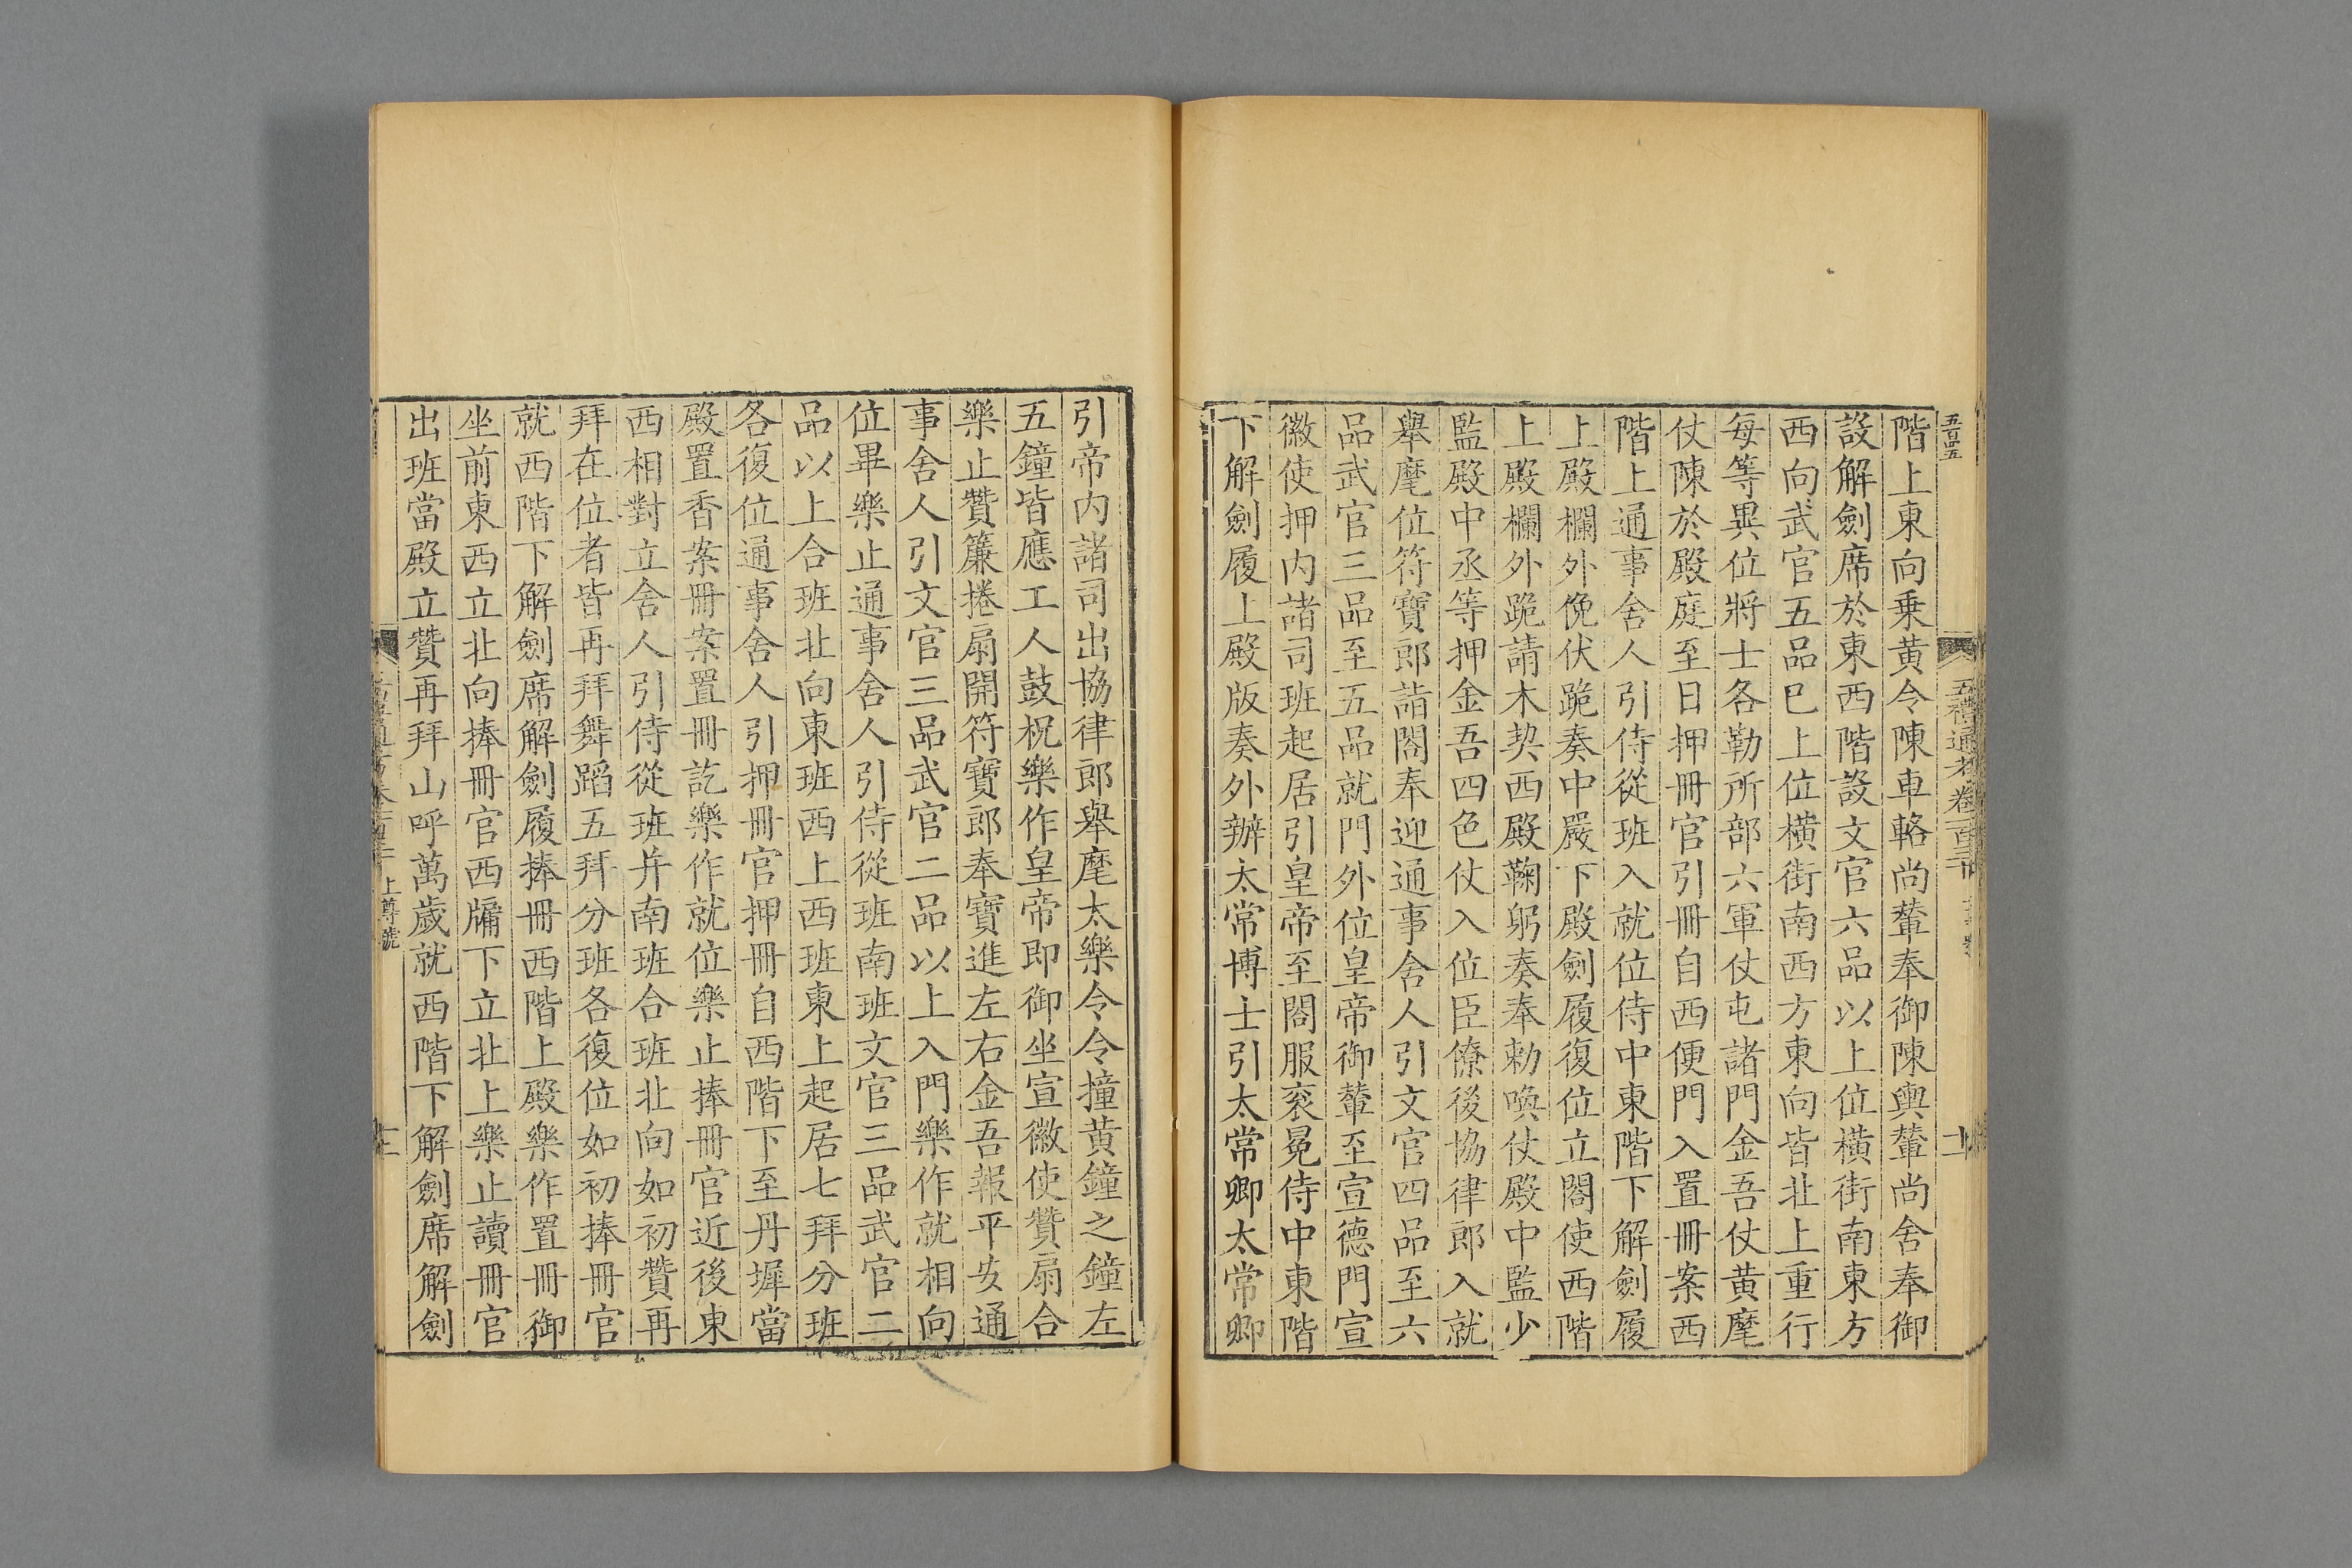 五百四五
五禮通考卷一百三十
階上東向乗黄令陳車輅尚輦奉御陳輿輦尚舍奉御
設解劍席於東西階設文官六品以上位横街南東方
西向武官五品已上位横街南西方東向皆北上重行
每等異位將士各勒所部六軍仗屯諸門金吾仗黄麾
仗陳於殿庭至日押冊官引冊自西便門入置冊案西
階上通事舍人引侍從班入就位侍中東階下解劍履
上殿欄外俛伏跪奏中嚴下殿劍履復位立閤使西階
上殿欄外跪請木契西殿鞠躬奏奉勅喚仗殿中監少
監殿中丞等押金吾四色仗入位臣僚後協律郎入就
舉麾位符寶郎詣閤奉迎通事舍人引文官四品至六
品武官三品至五品就門外位皇帝御輦至宣德門宣
徽使押内諸司班起居引皇帝至閤服衮冕侍中東階
下解劍履上殿版奏外辦太常博士引太常卿太常卿
引帝内諸司出協律郎舉麾太樂令令撞黄鐘之鐘左
五鐘皆應工人鼓柷樂作皇帝即御坐宣徽使贊扇合
樂止贊簾捲扇開符寶郎奉寶進左右金吾報平安通
事舍人引文官三品武官二品以上入門樂作就相向
位畢樂止通事舍人引侍從班南班文官三品武官二
品以上合班北向東班西上西班東上起居七拜分班
各復位通事舍人引押冊官押冊自西階下至丹墀當
殿置香案冊案置冊訖樂作就位樂止捧冊官近後東
西相對立舍人引侍從班并南班合班北向如初贊再
拜在位者皆再拜舞蹈五拜分班各復位如初捧冊官
就西階下解劍席解劍履捧冊西階上殿樂作置冊御
坐前東西立北向捧冊官西牖下立北上樂止讀冊官
出班當殿立贊再拜山呼萬歲就西階下解劍席解劍
上尊號